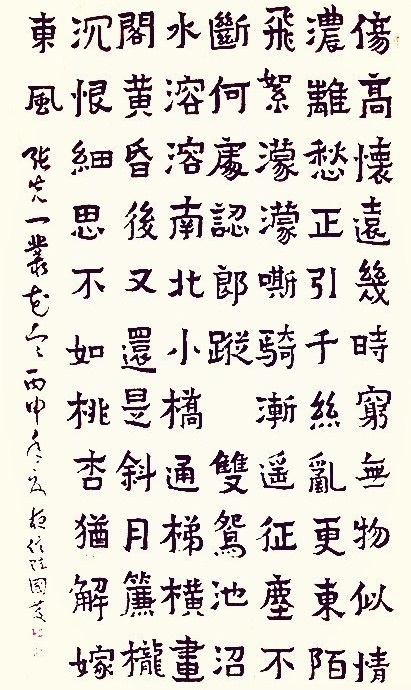 傷高懷遠幾時窮無物似情
濃離愁正引千絲亂更東陌
飛絮濛濛嘶騎漸遥征塵不
斷何處認郎蹤 雙鴛池沼
水溶溶南北小橋通梯橫畫
閣黃昏後又還是斜月簾櫳
沉恨細思不如桃杏猶解嫁
東風 張先一叢花令 丙申